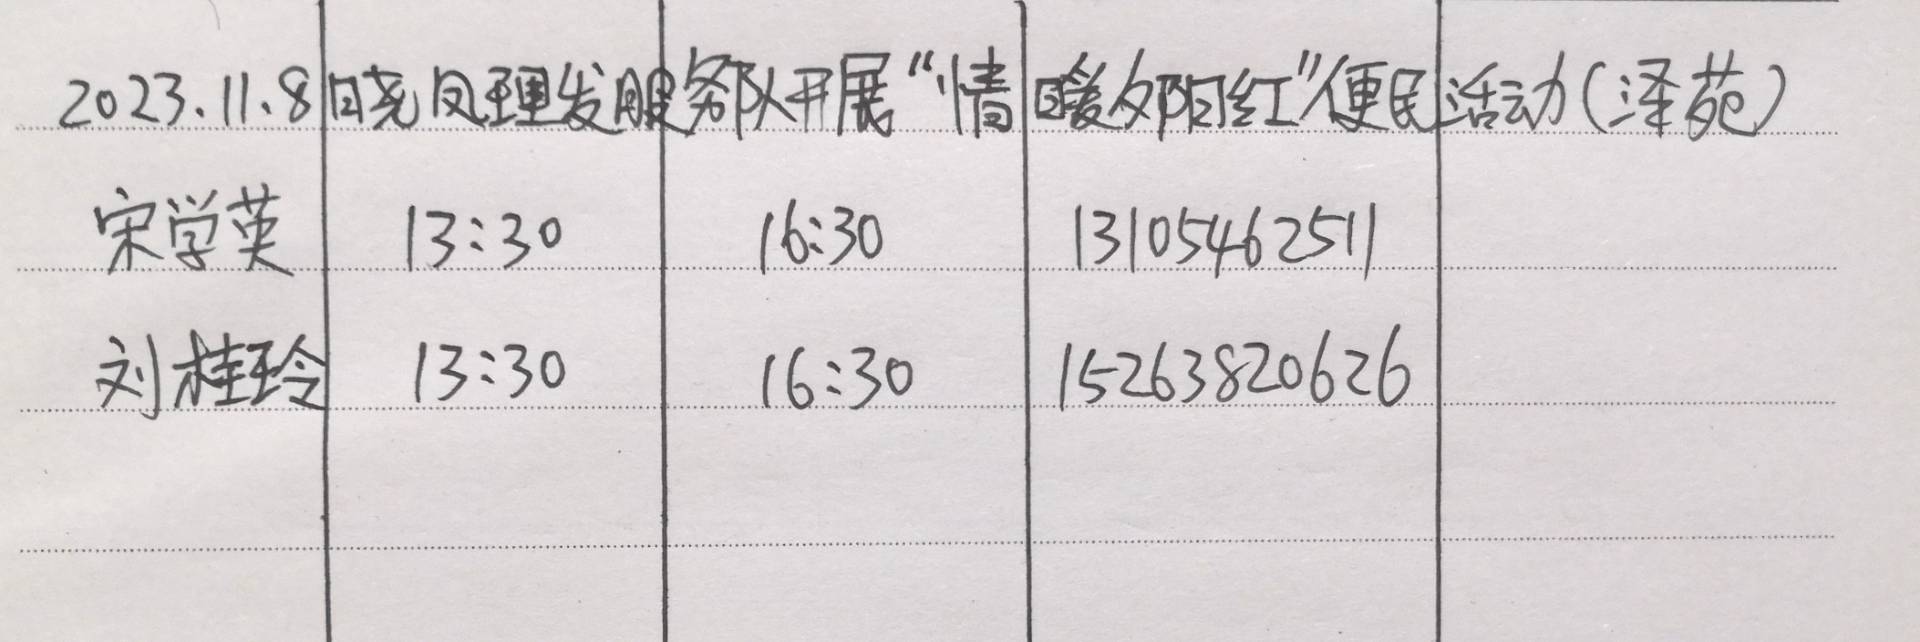 2023.11.8日晓凤理发服务队开展“情暖夕阳红”便民活动(泽苑)
宋学英 13:30 16:30 13105462511
刘桂玲 13:30 16:30 15263820626